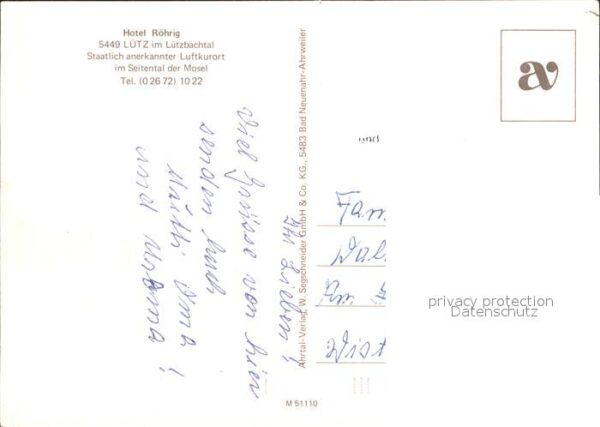 Hotel Röhrig
5449 LÜTZ im Lützbachtal
Staatlich anerkannter Luftkurort
im Seitental der Mosel
Tel. (0 26 72) 10 22
Ihr Lieben!
Viel Grüsse von hier
senden Euch
Mutti Oma
und Uroma!
Ahrtal-Verlag, W. Segschneider GmbH & Co. KG., 5483 Bad Neuenahr-Ahrweiler
M 51110
av
Fam.
Wal
Am
Wist
privacy protection
Datenschutz